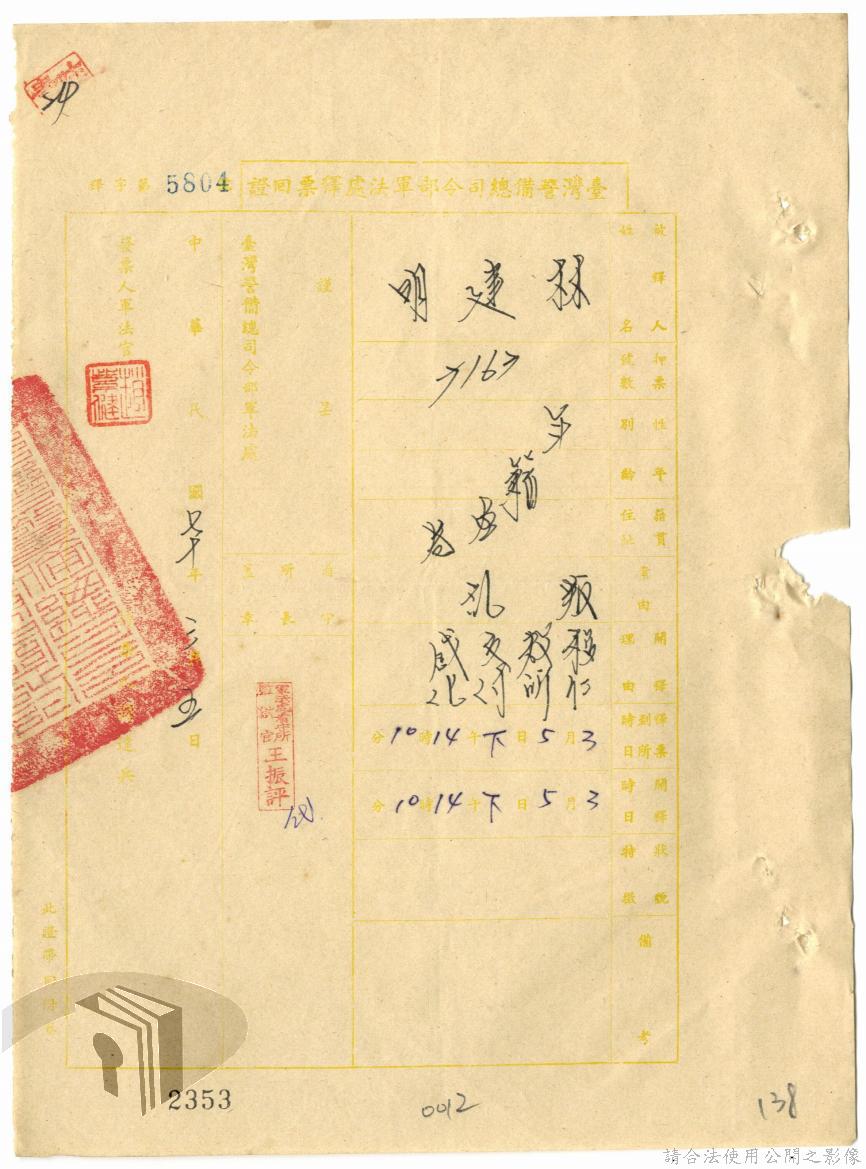 臺灣警備總司令部軍法處釋票回證
釋字第5804
被釋人姓名
林建明
押票號數
性別
年齡
籍貫住址
案由
叛亂
開釋理由
移仁教所交付感化
釋票到所時日
3月5日下午14時10分
開釋時日
3月5日下午14時10分
狀貌特徵
備考
謹呈
臺灣警備總司令部軍法處
看守所所長
蓋章
王振評
代
中華民國七十年三月五日
發票人軍法官
2353
0012
138
請合法使用公開之影像